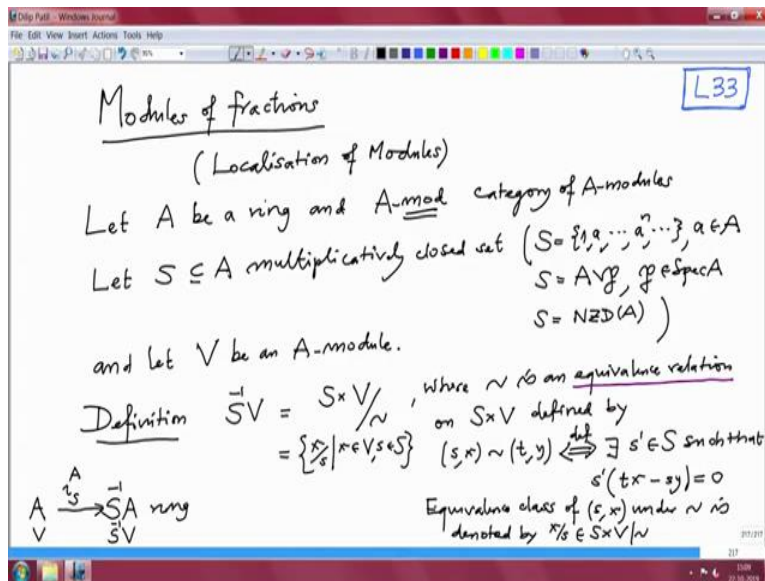 Dilip Patil - Windows Journal
File Edit View Insert Actions Tools Help
L33
Modules of fractions
(Localisation of Modules)
Let A be a ring and A-mod category of A-modules
Let S ⊆ A multiplicatively closed set (S = {1, a, ..., aⁿ, ...}, a ∈ A
S = A∖𝔭, 𝔭 ∈ Spec A
S = NZD(A))
and let V be an A-module.
Definition S⁻¹V = S×V/∼, where ∼ is an equivalence relation
= {x/s | x ∈ V, s ∈ S} on S×V defined by
(s,x) ∼ (t,y) def ⟺ ∃ s' ∈ S such that
s'(tx - sy) = 0
A ι_S^A → S⁻¹A ring
V S⁻¹V
Equivalence class of (s,x) under ∼ is
denoted by x/s ∈ S×V/∼
217/217
217
15:09
22-10-2019